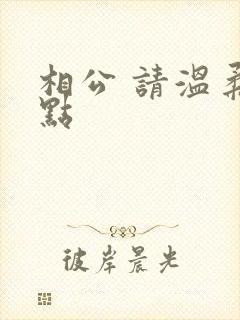 相公 請溫柔
點
彼岸晨光